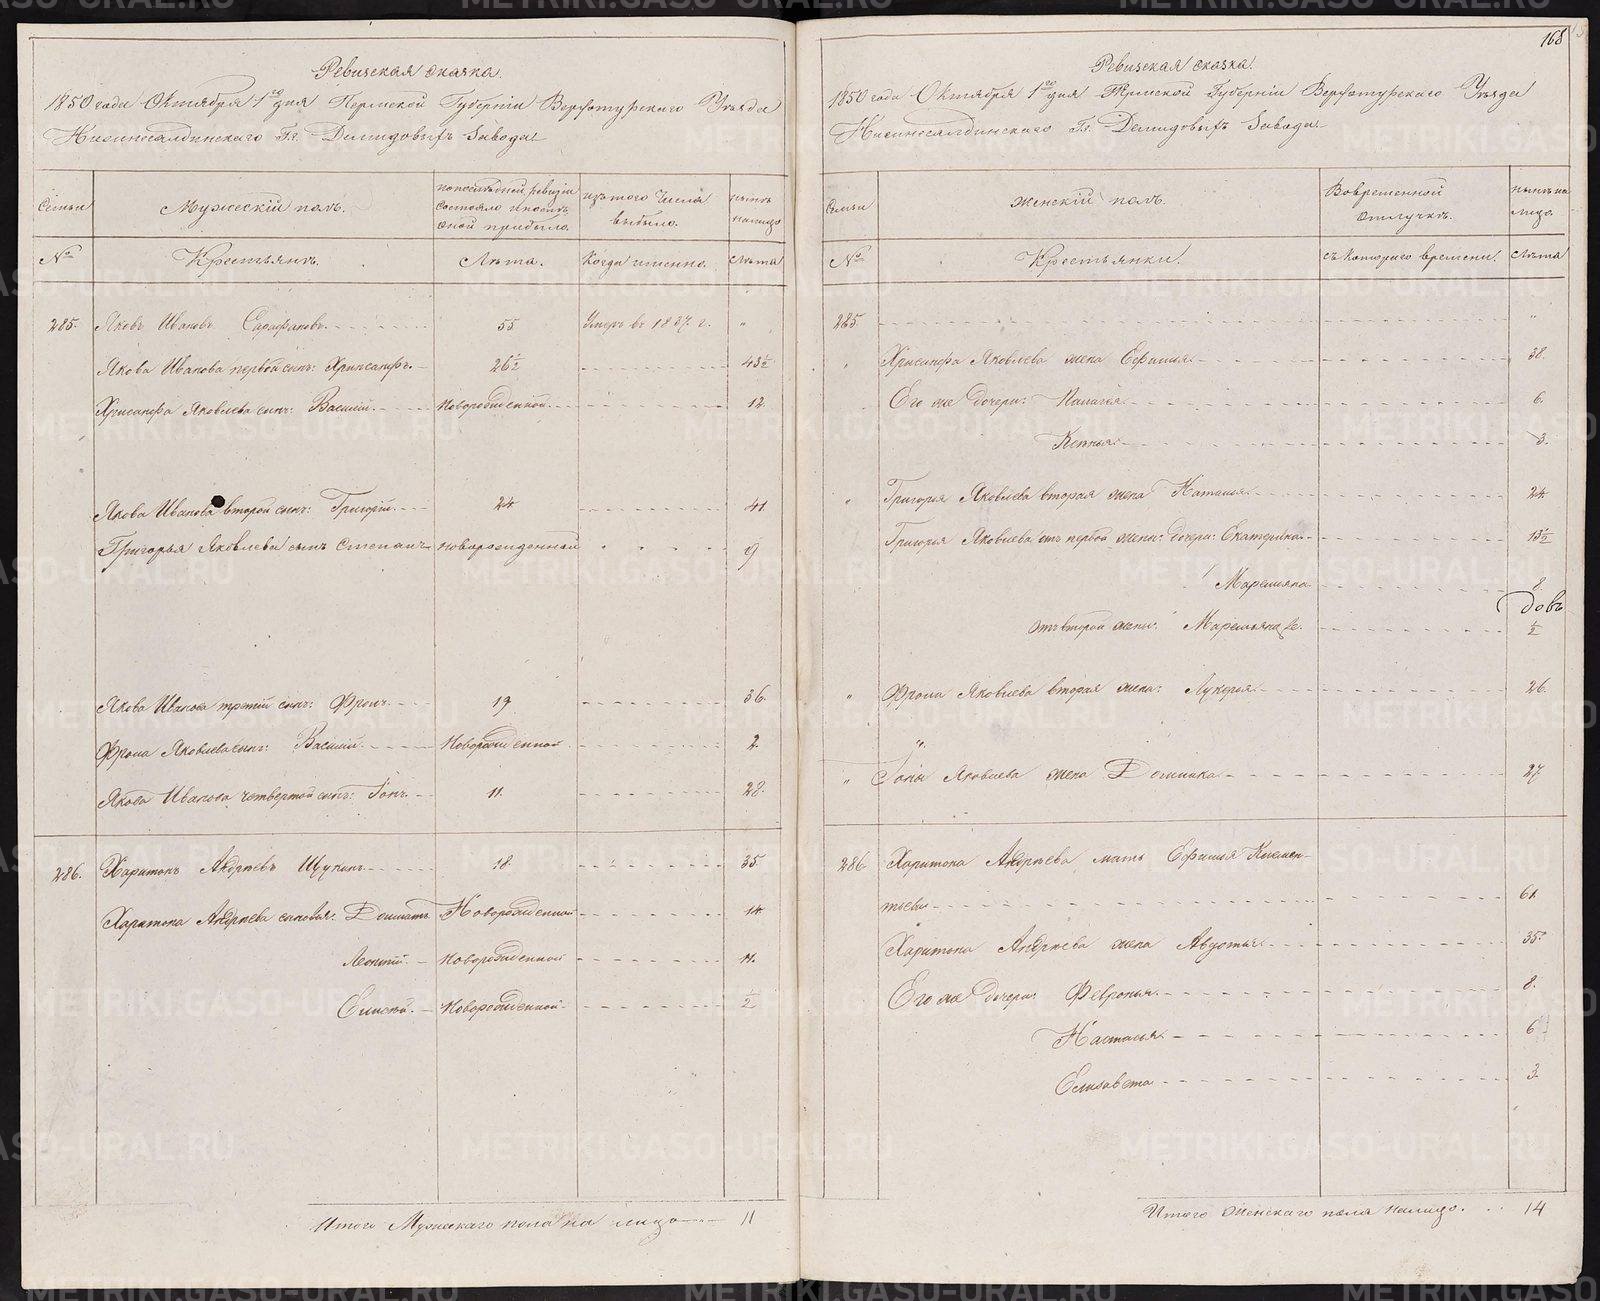 Ревизская сказка.
1850 года Октября 1го дня Пермской Губерніи Верхотурскаго Уѣзда
Нижнесалдинскаго Гг. Демидовыхъ Завода
Семьи
Мужескій полъ.
по послѣдней ревизіи
состояло и послѣ
оной прибыло.
изъ того числа
выбыло.
нынѣ
налицо
№
Крестьянъ.
Лѣта.
Когда именно.
Лѣта
285. Яковъ Ивановъ Сарафановъ. 55 Умеръ въ 1837. г. "
Якова Иванова первой сынъ: Хрисанфъ. 26½ 43½
Хрисанфа Яковлева сынъ: Василій. Новорожденной. 12.
Якова Иванова второй сынъ: Григорій. 24 41.
Григорья Яковлева сынъ Степанъ новорожденной 9
Якова Иванова третій сынъ: Фролъ. 19 36.
Фрола Яковлева сынъ: Василій. Новорожденной 2.
Якова Иванова четвертой сынъ: Іонъ. 11. 28.
286. Харитонъ Андреевъ Щукинъ. 18. 35.
Харитона Андреева сыновья: Новорожденной 14.
Леонтій. Новорожденной 11.
Елисей. Новорожденной ½
Итого Мужескаго пола на лицо 11
168
Ревизская сказка.
1850 года Октября 1го дня Пермской Губерніи Верхотурскаго Уѣзда
Нижнесалдинскаго Гг. Демидовыхъ Завода
Семьи
Женскій полъ.
Во временной
отлучкѣ.
нынѣ на
лицо.
№
Крестьянки.
съ котораго времени.
Лѣта
285. "
" Хрисанфа Яковлева жена Ефимия 38.
Его же дочери: Палагея 6.
Ксенья 3.
" Григорья Яковлева вторая жена Наталья 24.
Григорья Яковлева отъ первой жены: дочери: Екатерина 13½
Маремьяна 8.
довъ
отъ второй жены: Маремьяна ½
" Фрола Яковлева вторая жена: Лукерья 26.
".
" Іоны Яковлева жена 27
286 Харитона Андреева мать Ефимия Климен-
тьева 61.
Харитона Андреева жена Авдотья 35.
Его же дочери: Февронья. 8.
Настасья. 6
Елизавета 3.
Итого Женскаго пола налицо. 14
METRIKI.GASO-URAL.RU